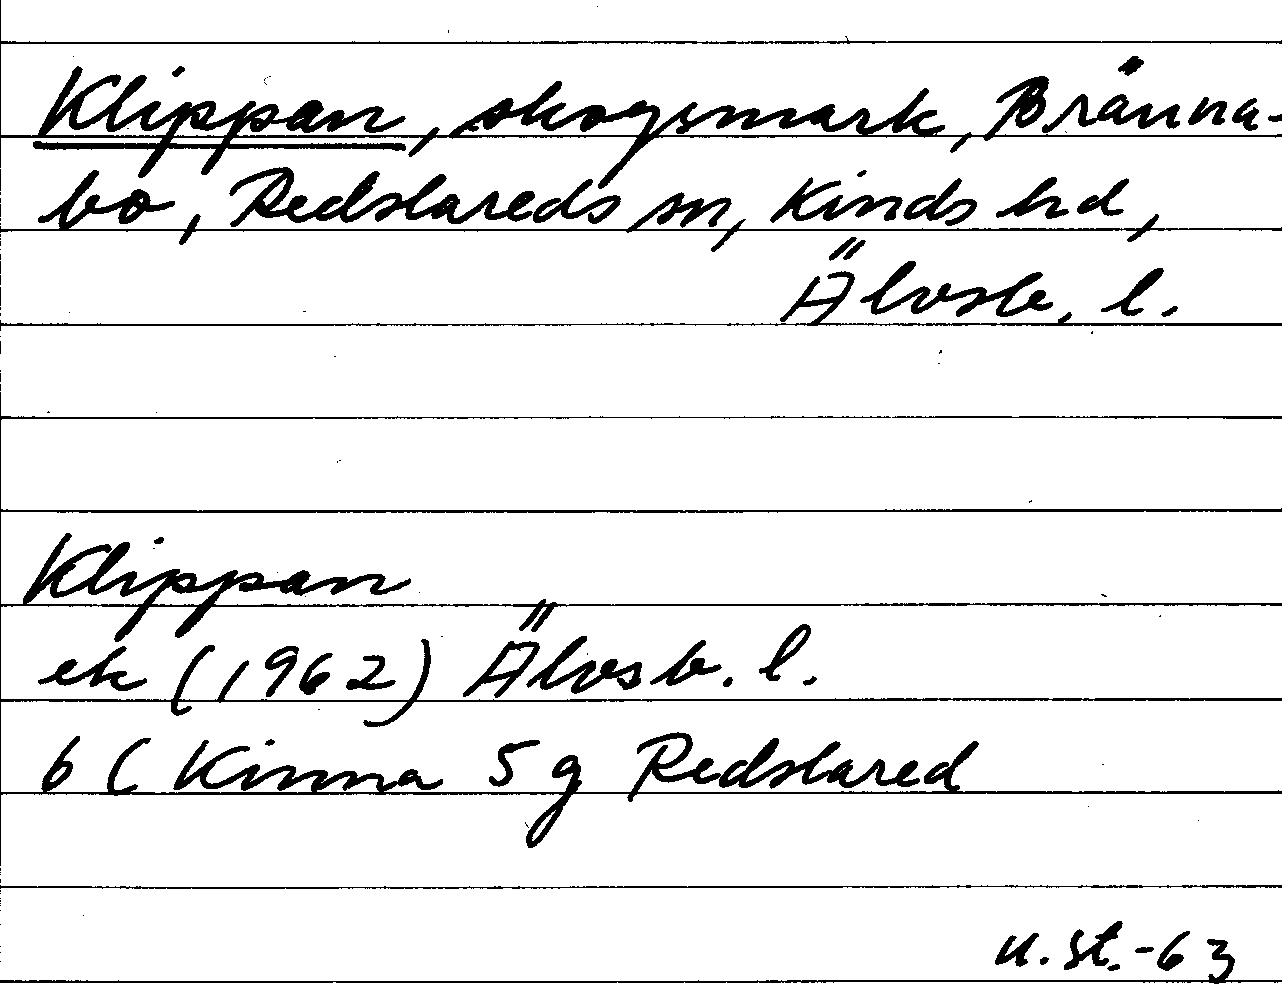 Klippan, skogsmark, Bränna-
bo, Redslareds sn, Kinds hd,
Älvsb. l.
Klippan
ek (1962) Älvsb. l.
6 C Kinna 5 g Redslared
u. st. -63